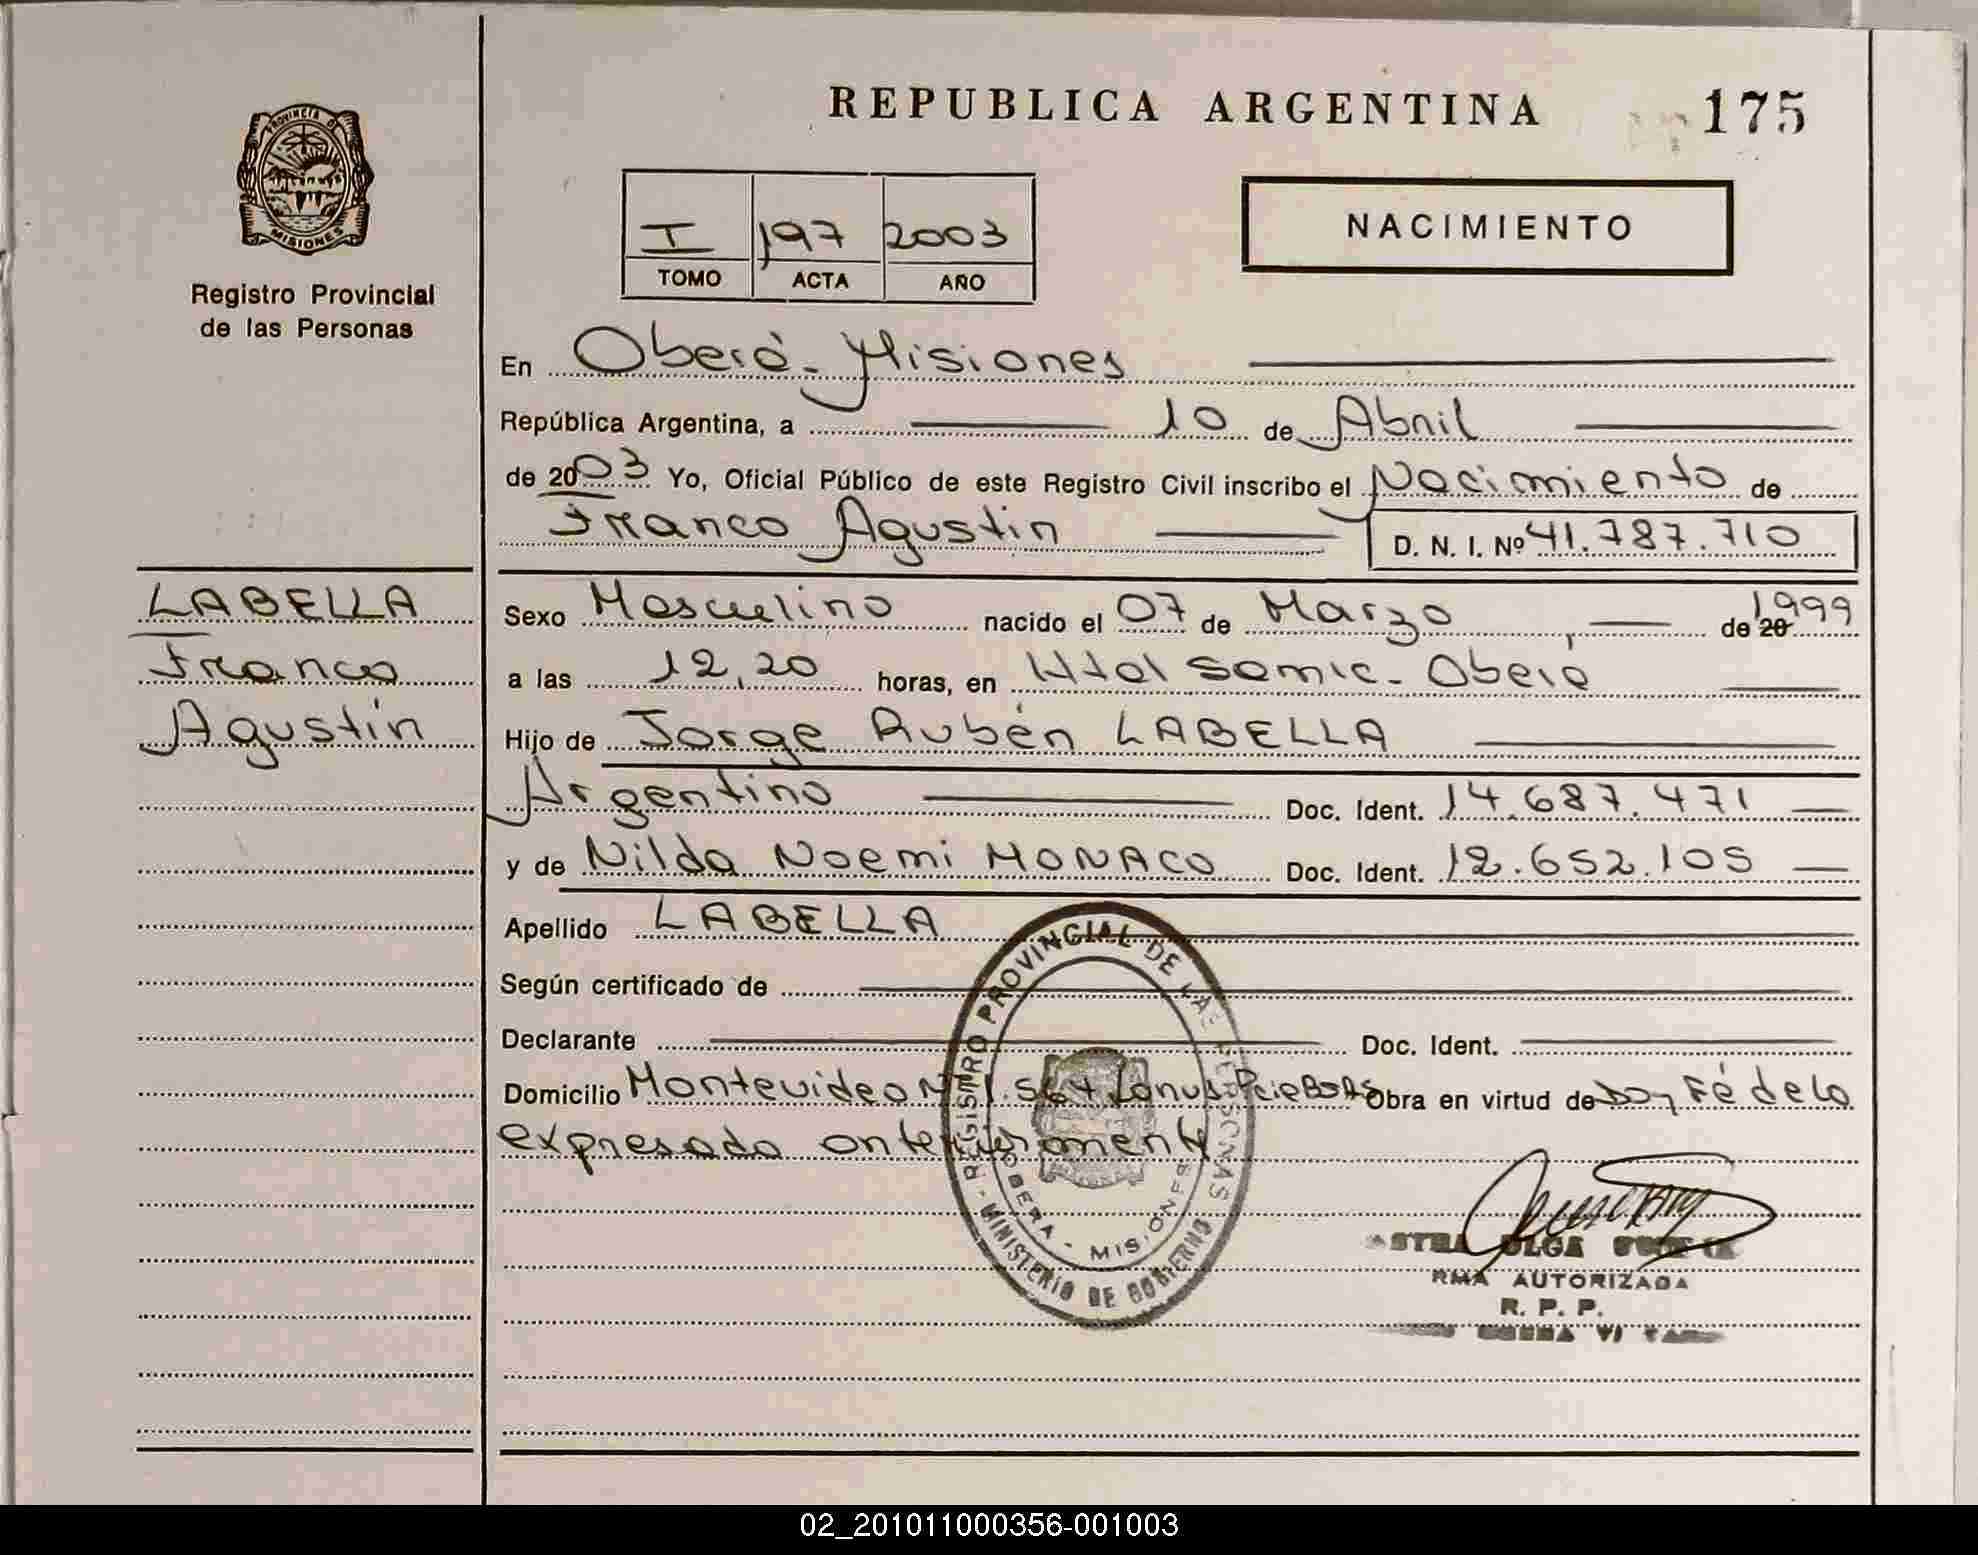 REPUBLICA ARGENTINA 175
PROVINCIA DE
MISIONES
Registro Provincial
de las Personas
I 197 2003
TOMO ACTA AÑO
NACIMIENTO
En Oberá - Misiones
República Argentina, a 10 de Abril
de 2003 Yo, Oficial Público de este Registro Civil inscribo el Nacimiento de
Franco Agustin D. N. I. Nº 41.787.710
LABELLA
Franco
Agustín
Sexo Masculino nacido el 07 de Marzo, de 20 1999
a las 12,20 horas, en Htal Samic - Oberá
Hijo de Jorge Rubén LABELLA
Argentino Doc. Ident. 14.687.471
y de Nilda Noemi MONACO Doc. Ident. 12.652.105
Apellido LABELLA
Según certificado de
Declarante Doc. Ident.
Domicilio Montevideo Lanus Obra en virtud de Doy Fé de lo
expresado anteriormente
REGISTRO PROVINCIAL DE LAS PERSONAS
OBERA - MISIONES
MINISTERIO DE GOBIERNO
OLGA
AUTORIZADA
R. P. P.
02_201011000356-001003